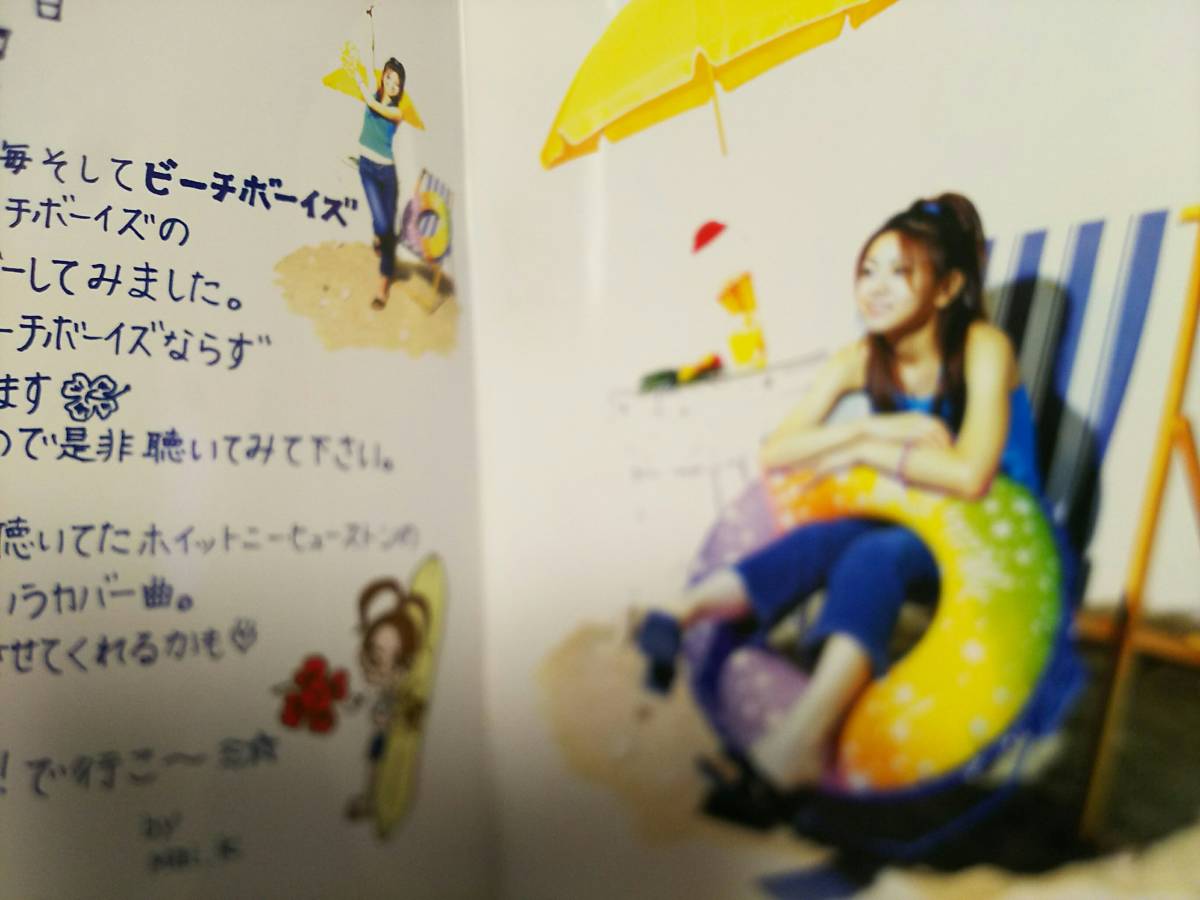 日
毎そしてビーチボーイズ
チボーイズの
ーしてみました。
ーチボーイズならず
ます
ので是非聴いてみて下さい。
聴いてたホイットニーヒューストンの
ノラカバー曲。
させてくれるかも
!で行こ〜
by
MAI.K